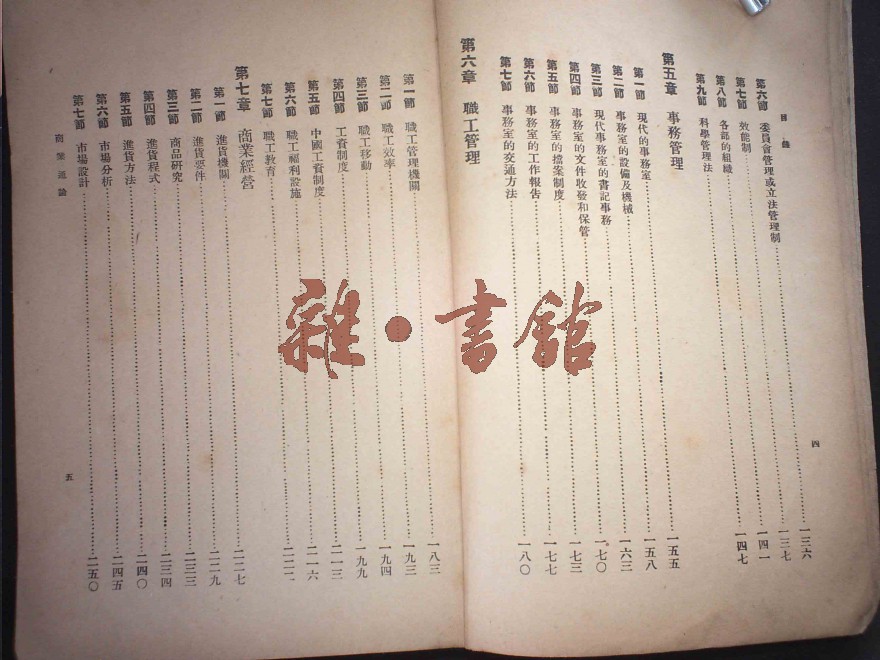 目錄
第六節 委員會管理或立法管理制……一三六
第七節 效能制……一三七
第八節 各部的組織……一四一
第九節 科學管理法……一四七
第五章 事務管理
第一節 現代的事務室……一五五
第二節 事務室的設備及機械……一五八
第三節 現代事務室的書記事務……一六三
第四節 事務室的文件收發和保管……一七〇
第五節 事務室的檔案制度……一七三
第六節 事務室的工作報告……一七七
第七節 事務室的交通方法……一八〇
第六章 職工管理
四
第一節 職工管理機關……一八三
第二節 職工效率……一九三
第三節 職工移動……一九四
第四節 工資制度……一九九
第五節 中國工資制度……二一三
第六節 職工福利設施……二一六
第七節 職工教育……二二二
第七章 商業經營
第一節 進貨機關……二二七
第二節 進貨要件……二二九
第三節 商品研究……二三三
第四節 進貨程式……二三四
第五節 進貨方法……二四〇
第六節 市場分析……二四五
第七節 市場設計……二五〇
商業通論
五
雜·書館